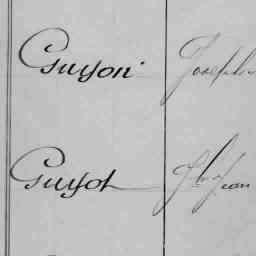 Guyon Joseph
Guyot Jean